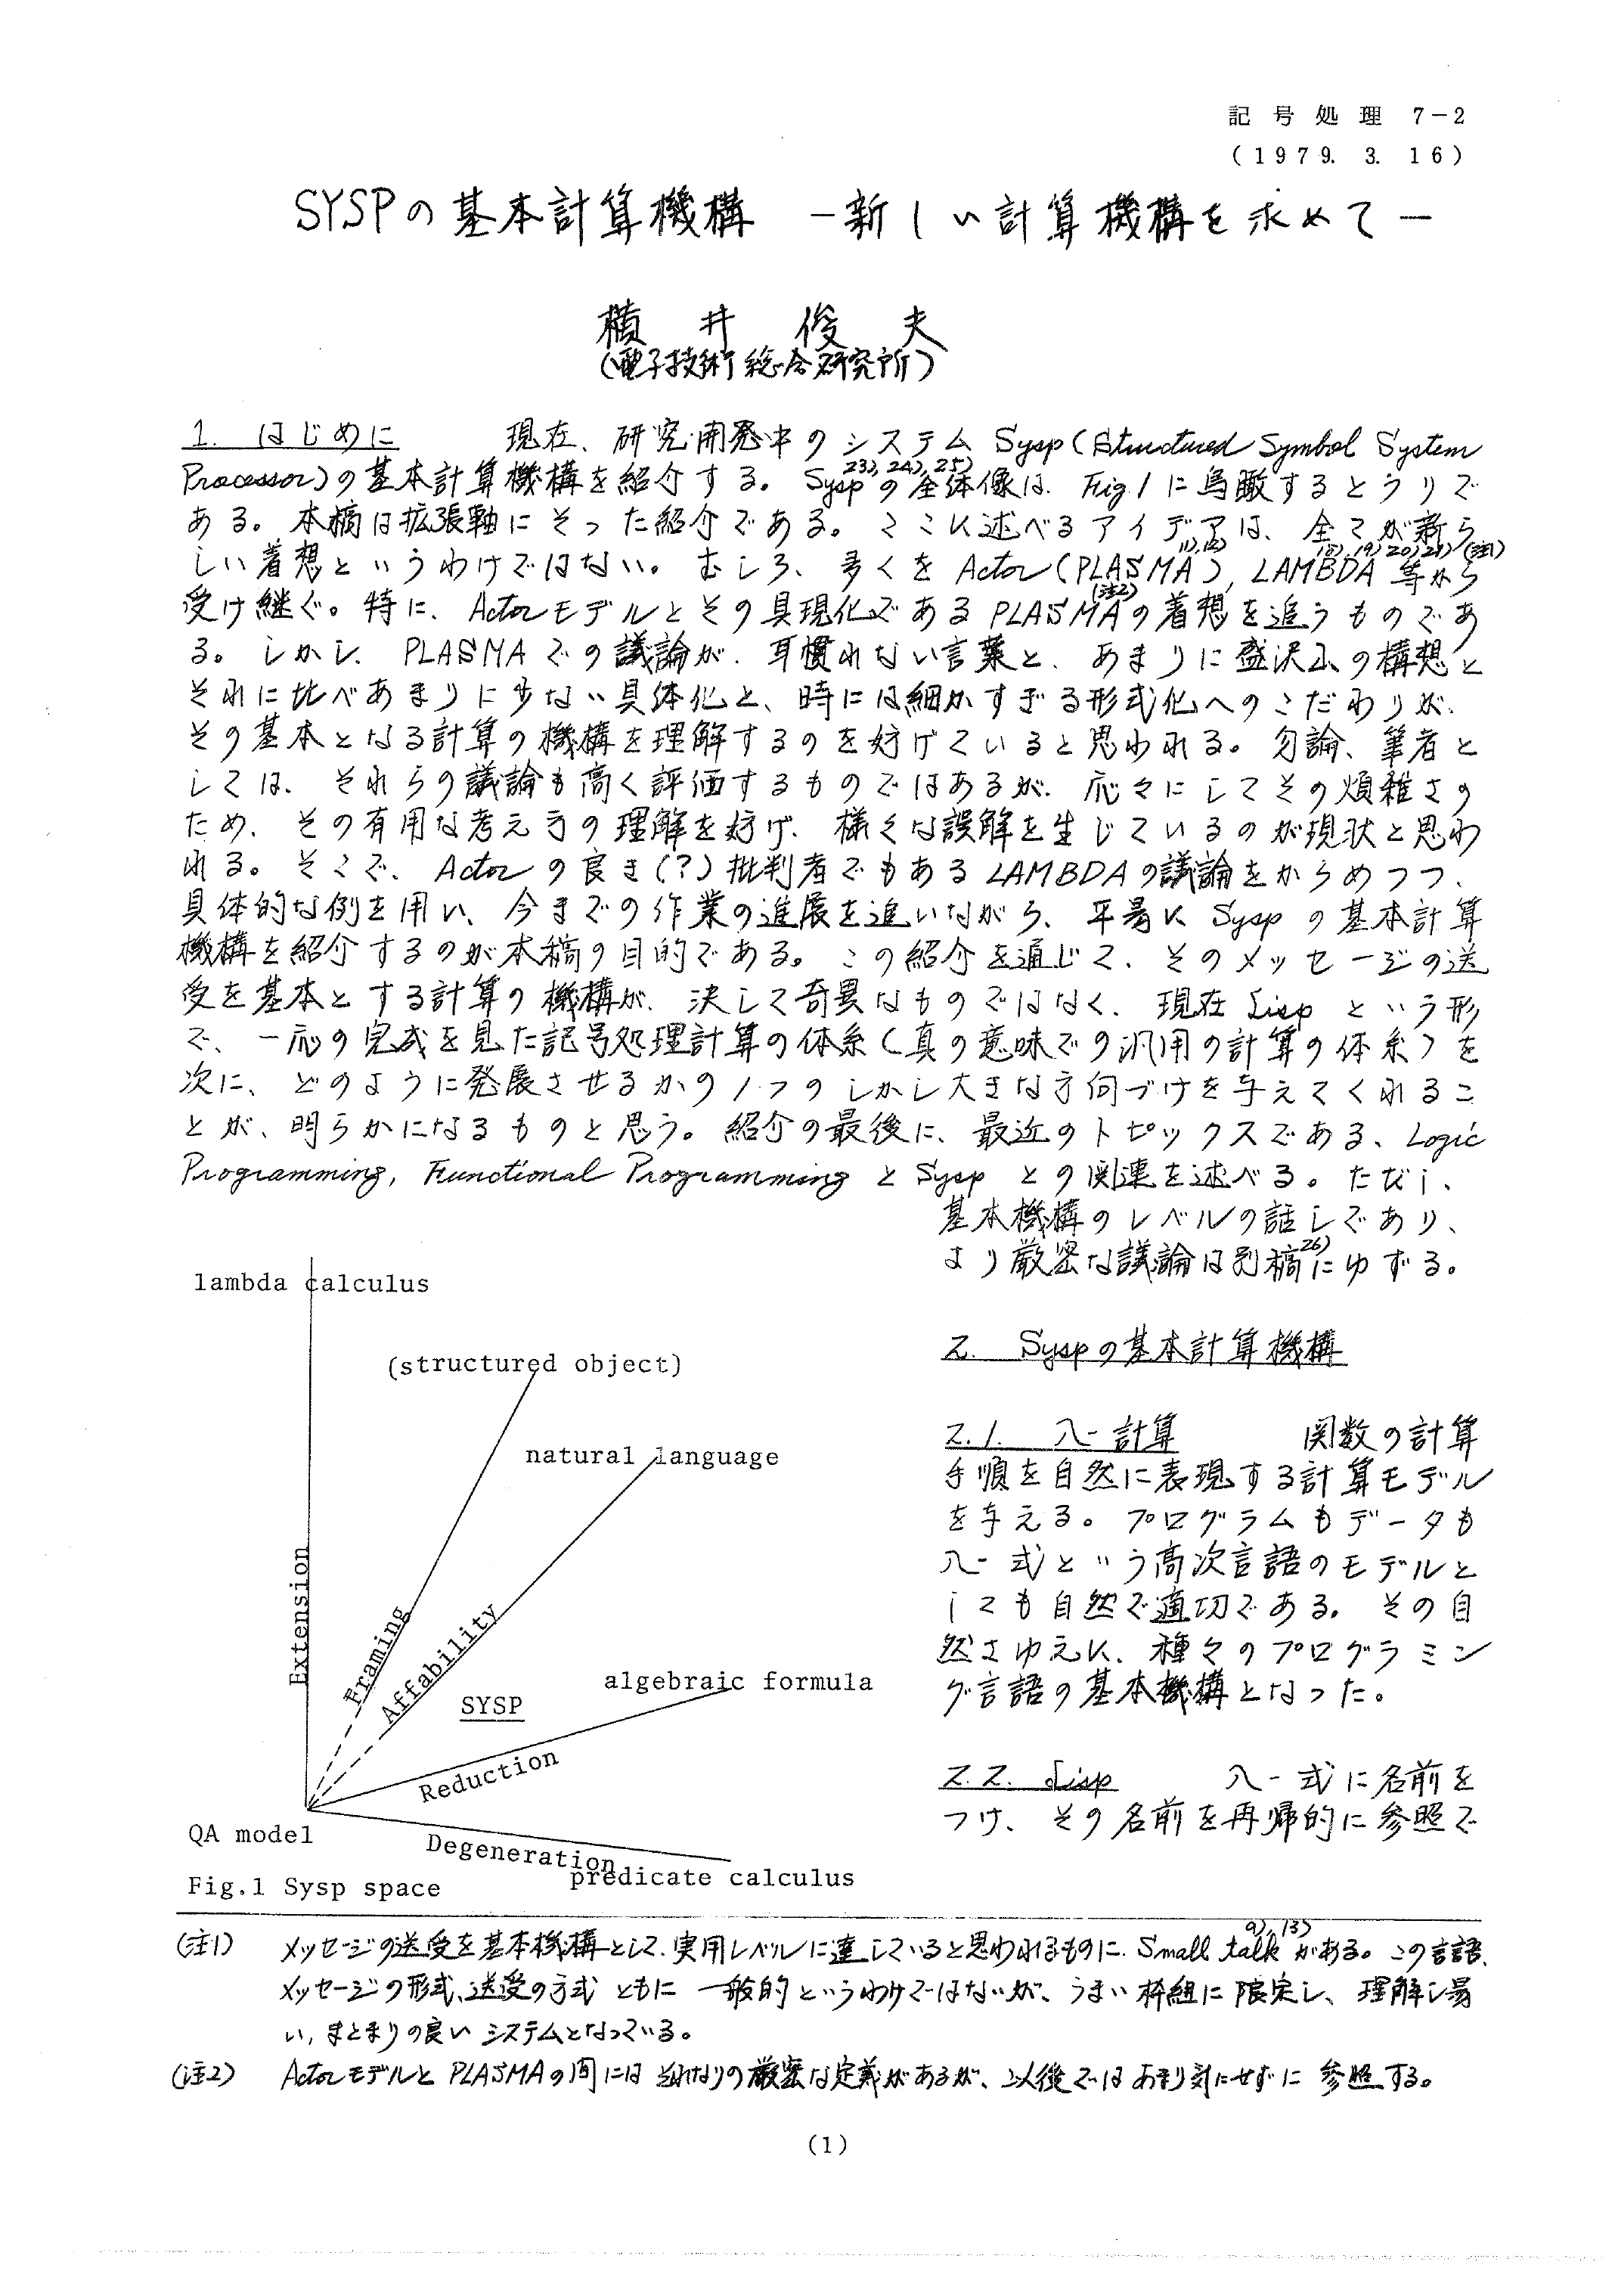 記号処理 7-2
(1979. 3. 16)
SYSPの基本計算機構 －新しい計算機構を求めて－
横井俊夫
(電子技術総合研究所)
1. はじめに 現在、研究開発中のシステム Sysp (Structured Symbol System
Processor)の基本計算機構を紹介する。Sysp23),24),25)の全体像は、Fig.1に鳥瞰するとうりで
ある。本稿は拡張軸にそった紹介である。ここに述べるアイデアは、全てが新ら
しい着想というわけではない。むしろ、多くを Actor (PLASMA)11),12), LAMBDA18),19),20),21)等(注1)から
受け継ぐ。特に、Actorモデルとその具現化である PLASMA(注2)の着想を追うものであ
る。しかし、PLASMAでの議論が、耳慣れない言葉と、あまりに盛沢山の構想と
それに比べあまりに少ない具体化と、時には細かすぎる形式化へのこだわりが、
その基本となる計算の機構を理解するのを妨げていると思われる。勿論、筆者と
しては、それらの議論も高く評価するものではあるが、応々にしてその煩雑さの
ため、その有用な考え方の理解を妨げ、様々な誤解を生じているのが現状と思わ
れる。そこで、Actorの良き(?)批判者でもあるLAMBDAの議論をからめつつ、
具体的な例を用い、今までの作業の進展を追いながら、平易に Sysp の基本計算
機構を紹介するのが本稿の目的である。この紹介を通じて、そのメッセージの送
受を基本とする計算の機構が、決して奇異なものではなく、現在 Lisp という形
で、一応の完成を見た記号処理計算の体系(真の意味での汎用の計算の体系)を
次に、どのように発展させるかの1つのしかし大きな方向づけを与えてくれるこ
とが、明らかになるものと思う。紹介の最後に、最近のトピックスである、Logic
Programming, Functional Programming と Sysp との関連を述べる。ただし、
基本機構のレベルの話しであり、
より厳密な議論は別稿26)にゆずる。
lambda calculus
(structured object)
natural language
Extension
Framing
Affability
SYSP
algebraic formula
Reduction
QA model
Degeneration
predicate calculus
Fig.1 Sysp space
2. Syspの基本計算機構
2.1. λ-計算 関数の計算
手順を自然に表現する計算モデル
を与える。プログラムもデータも
λ-式という高次言語のモデルと
しても自然で適切である。その自
然さゆえに、種々のプログラミン
グ言語の基本機構となった。
2.2. Lisp λ-式に名前を
つけ、その名前を再帰的に参照で
(注1) メッセージの送受を基本機構として、実用レベルに達していると思われるものに、Small talk9),13)がある。この言語、
メッセージの形式、送受の方式ともに一般的というわけではないが、うまい枠組に限定し、理解し易
い, まとまりの良いシステムとなっている。
(注2) ActorモデルとPLASMAの間にはそれなりの厳密な定義があるが、以後ではあまり気にせずに参照する。
(1)